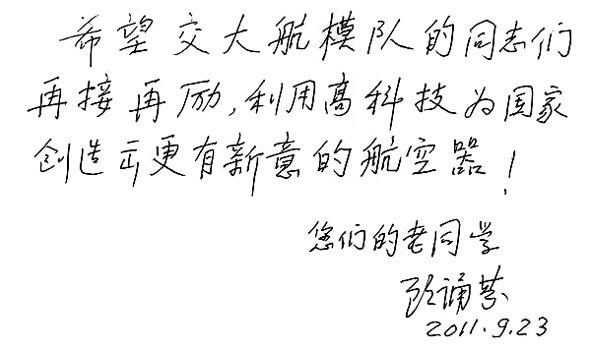 希望交大航模队的同志们
再接再励,利用高科技为国家
创造出更有新意的航空器!
您们的老同学
顾诵芬
2011.9.23